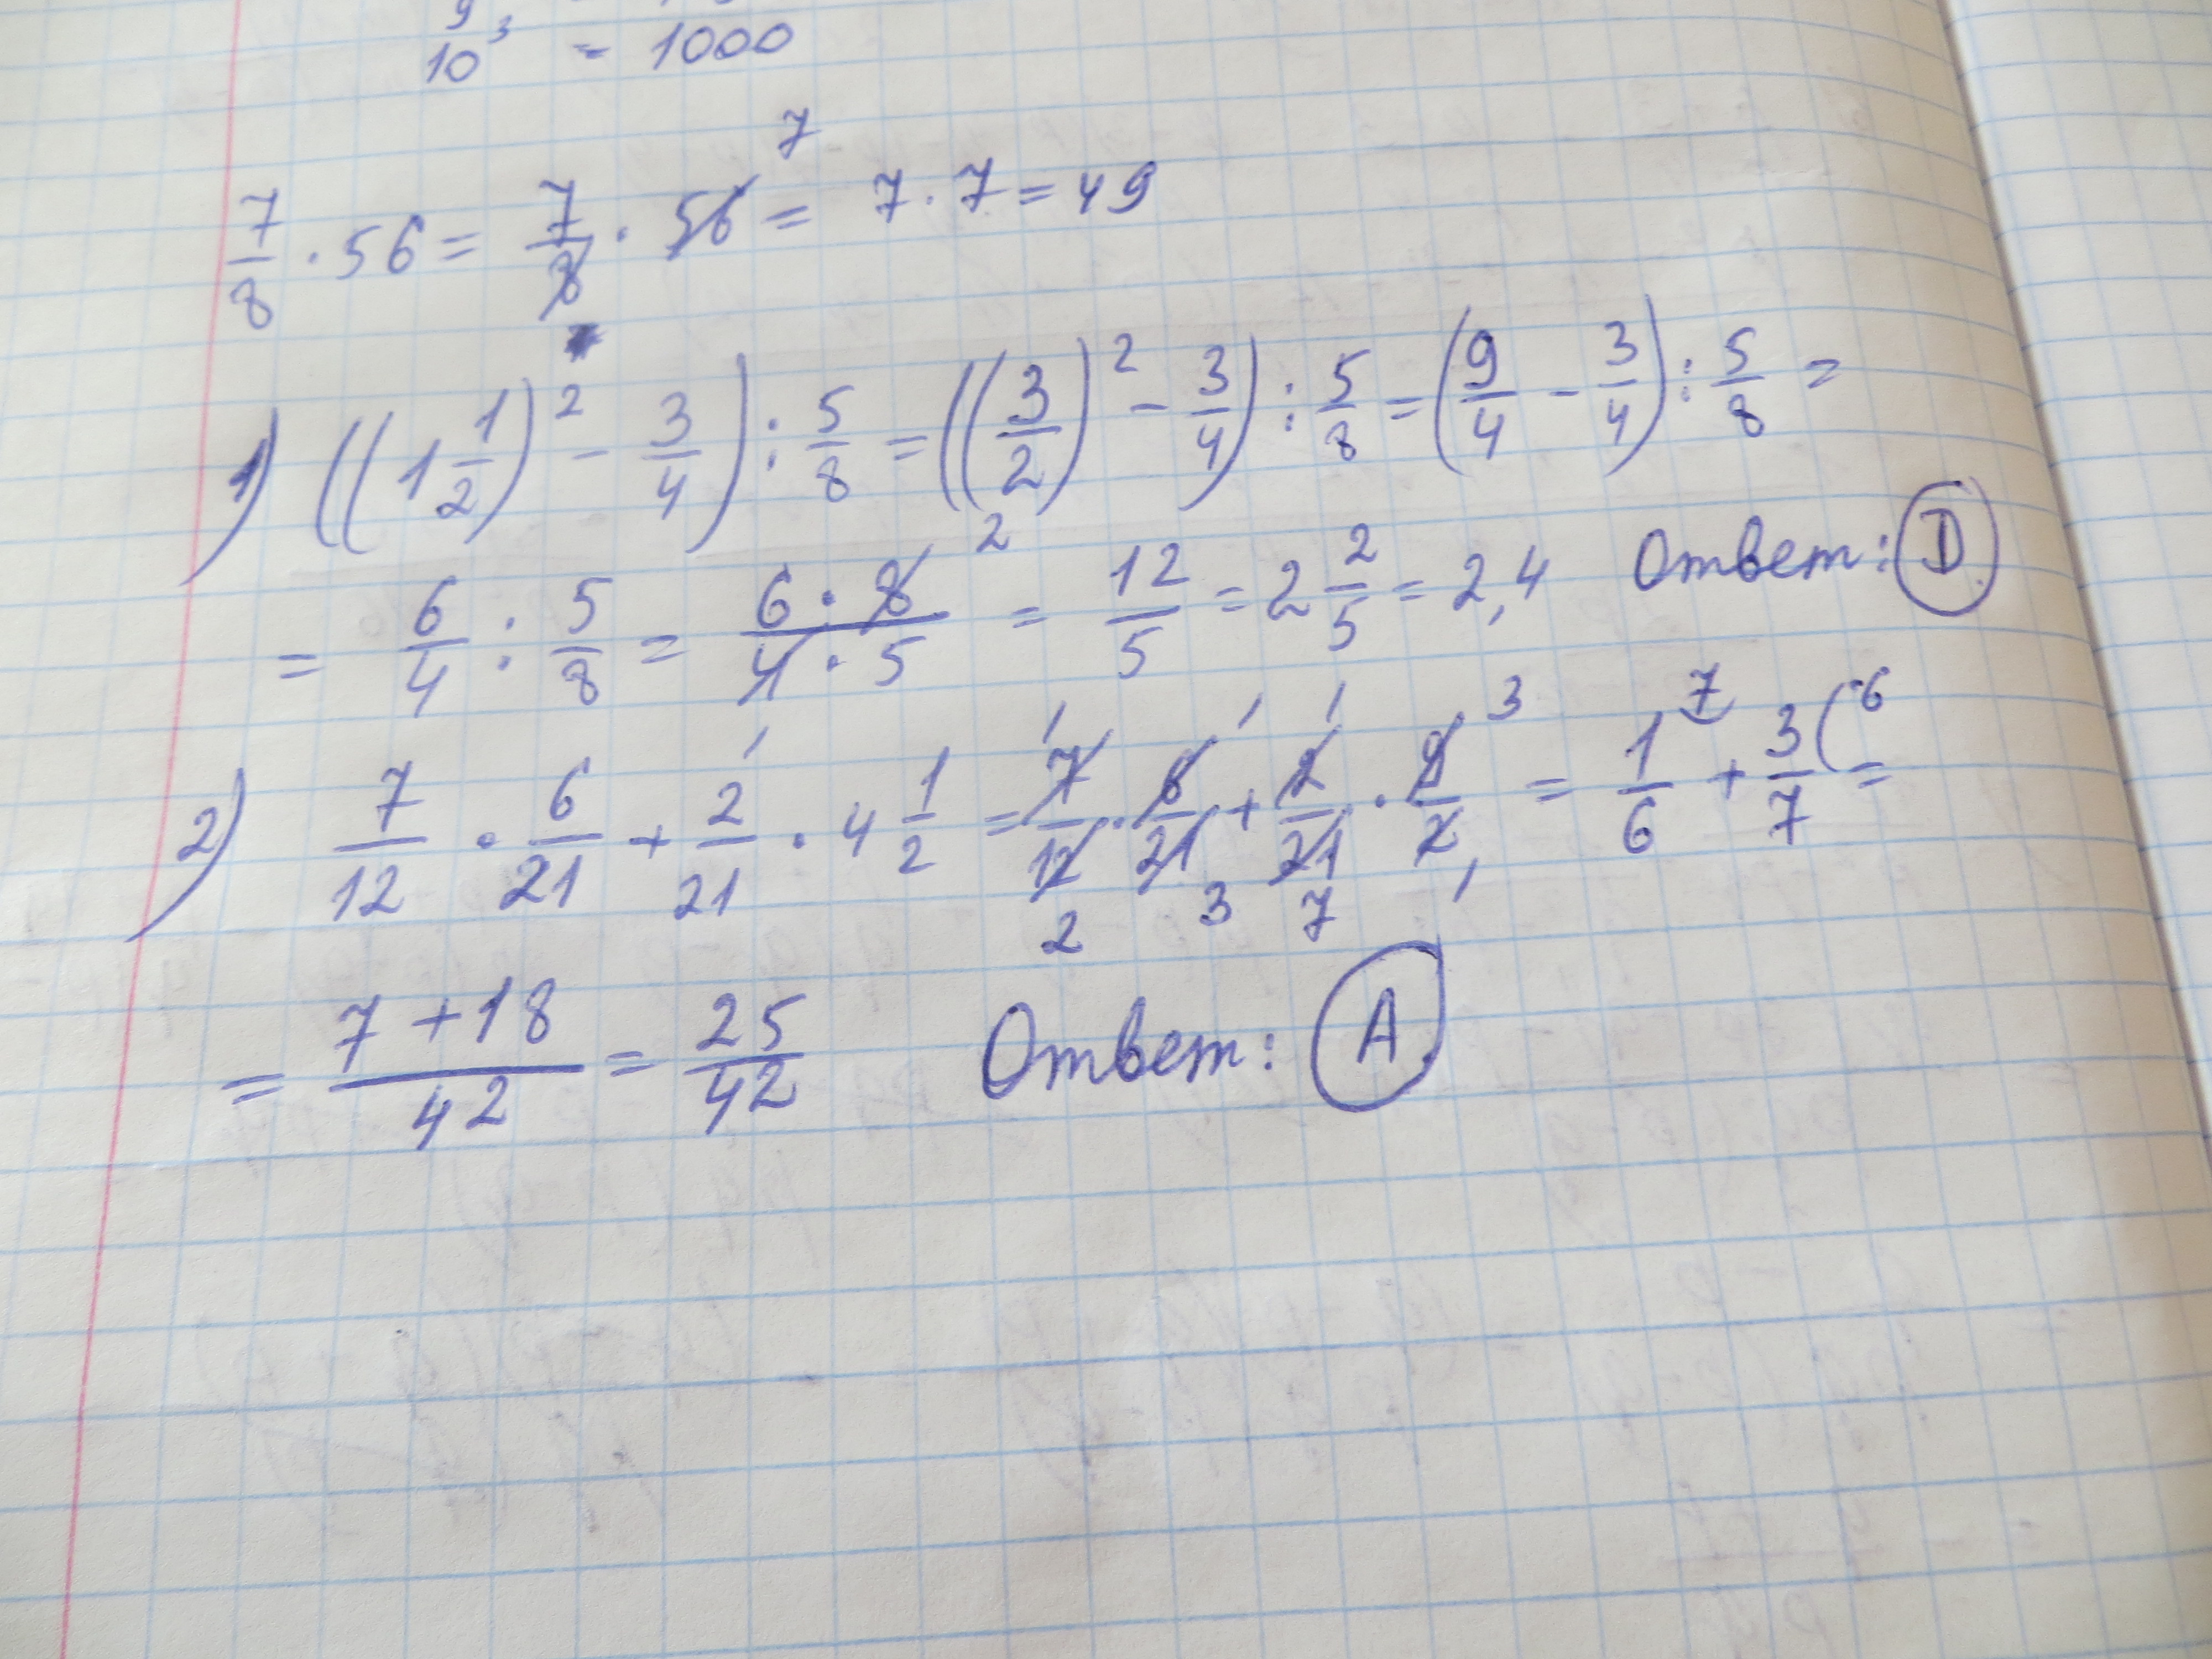 10³ = 1000
7/8 · 56 = 7/8 · 56 7 = 7 · 7 = 49
1) ((1 1/2)² - 3/4) : 5/8 = ((3/2)² - 3/4) : 5/8 = (9/4 - 3/4) : 5/8 =
= 6/4 : 5/8 = 6 · 8 2 / 4 · 5 = 12/5 = 2 2/5 = 2,4 Ответ: D
2) 7/12 · 6/21 + 2/21 · 4 1/2 = 7 1/12 2 · 6 1/21 3 + 2 1/21 7 · 9 3/2 1 = 1 7/6 + 3 (·6/7 =
= 7 + 18 / 42 = 25/42 Ответ: A